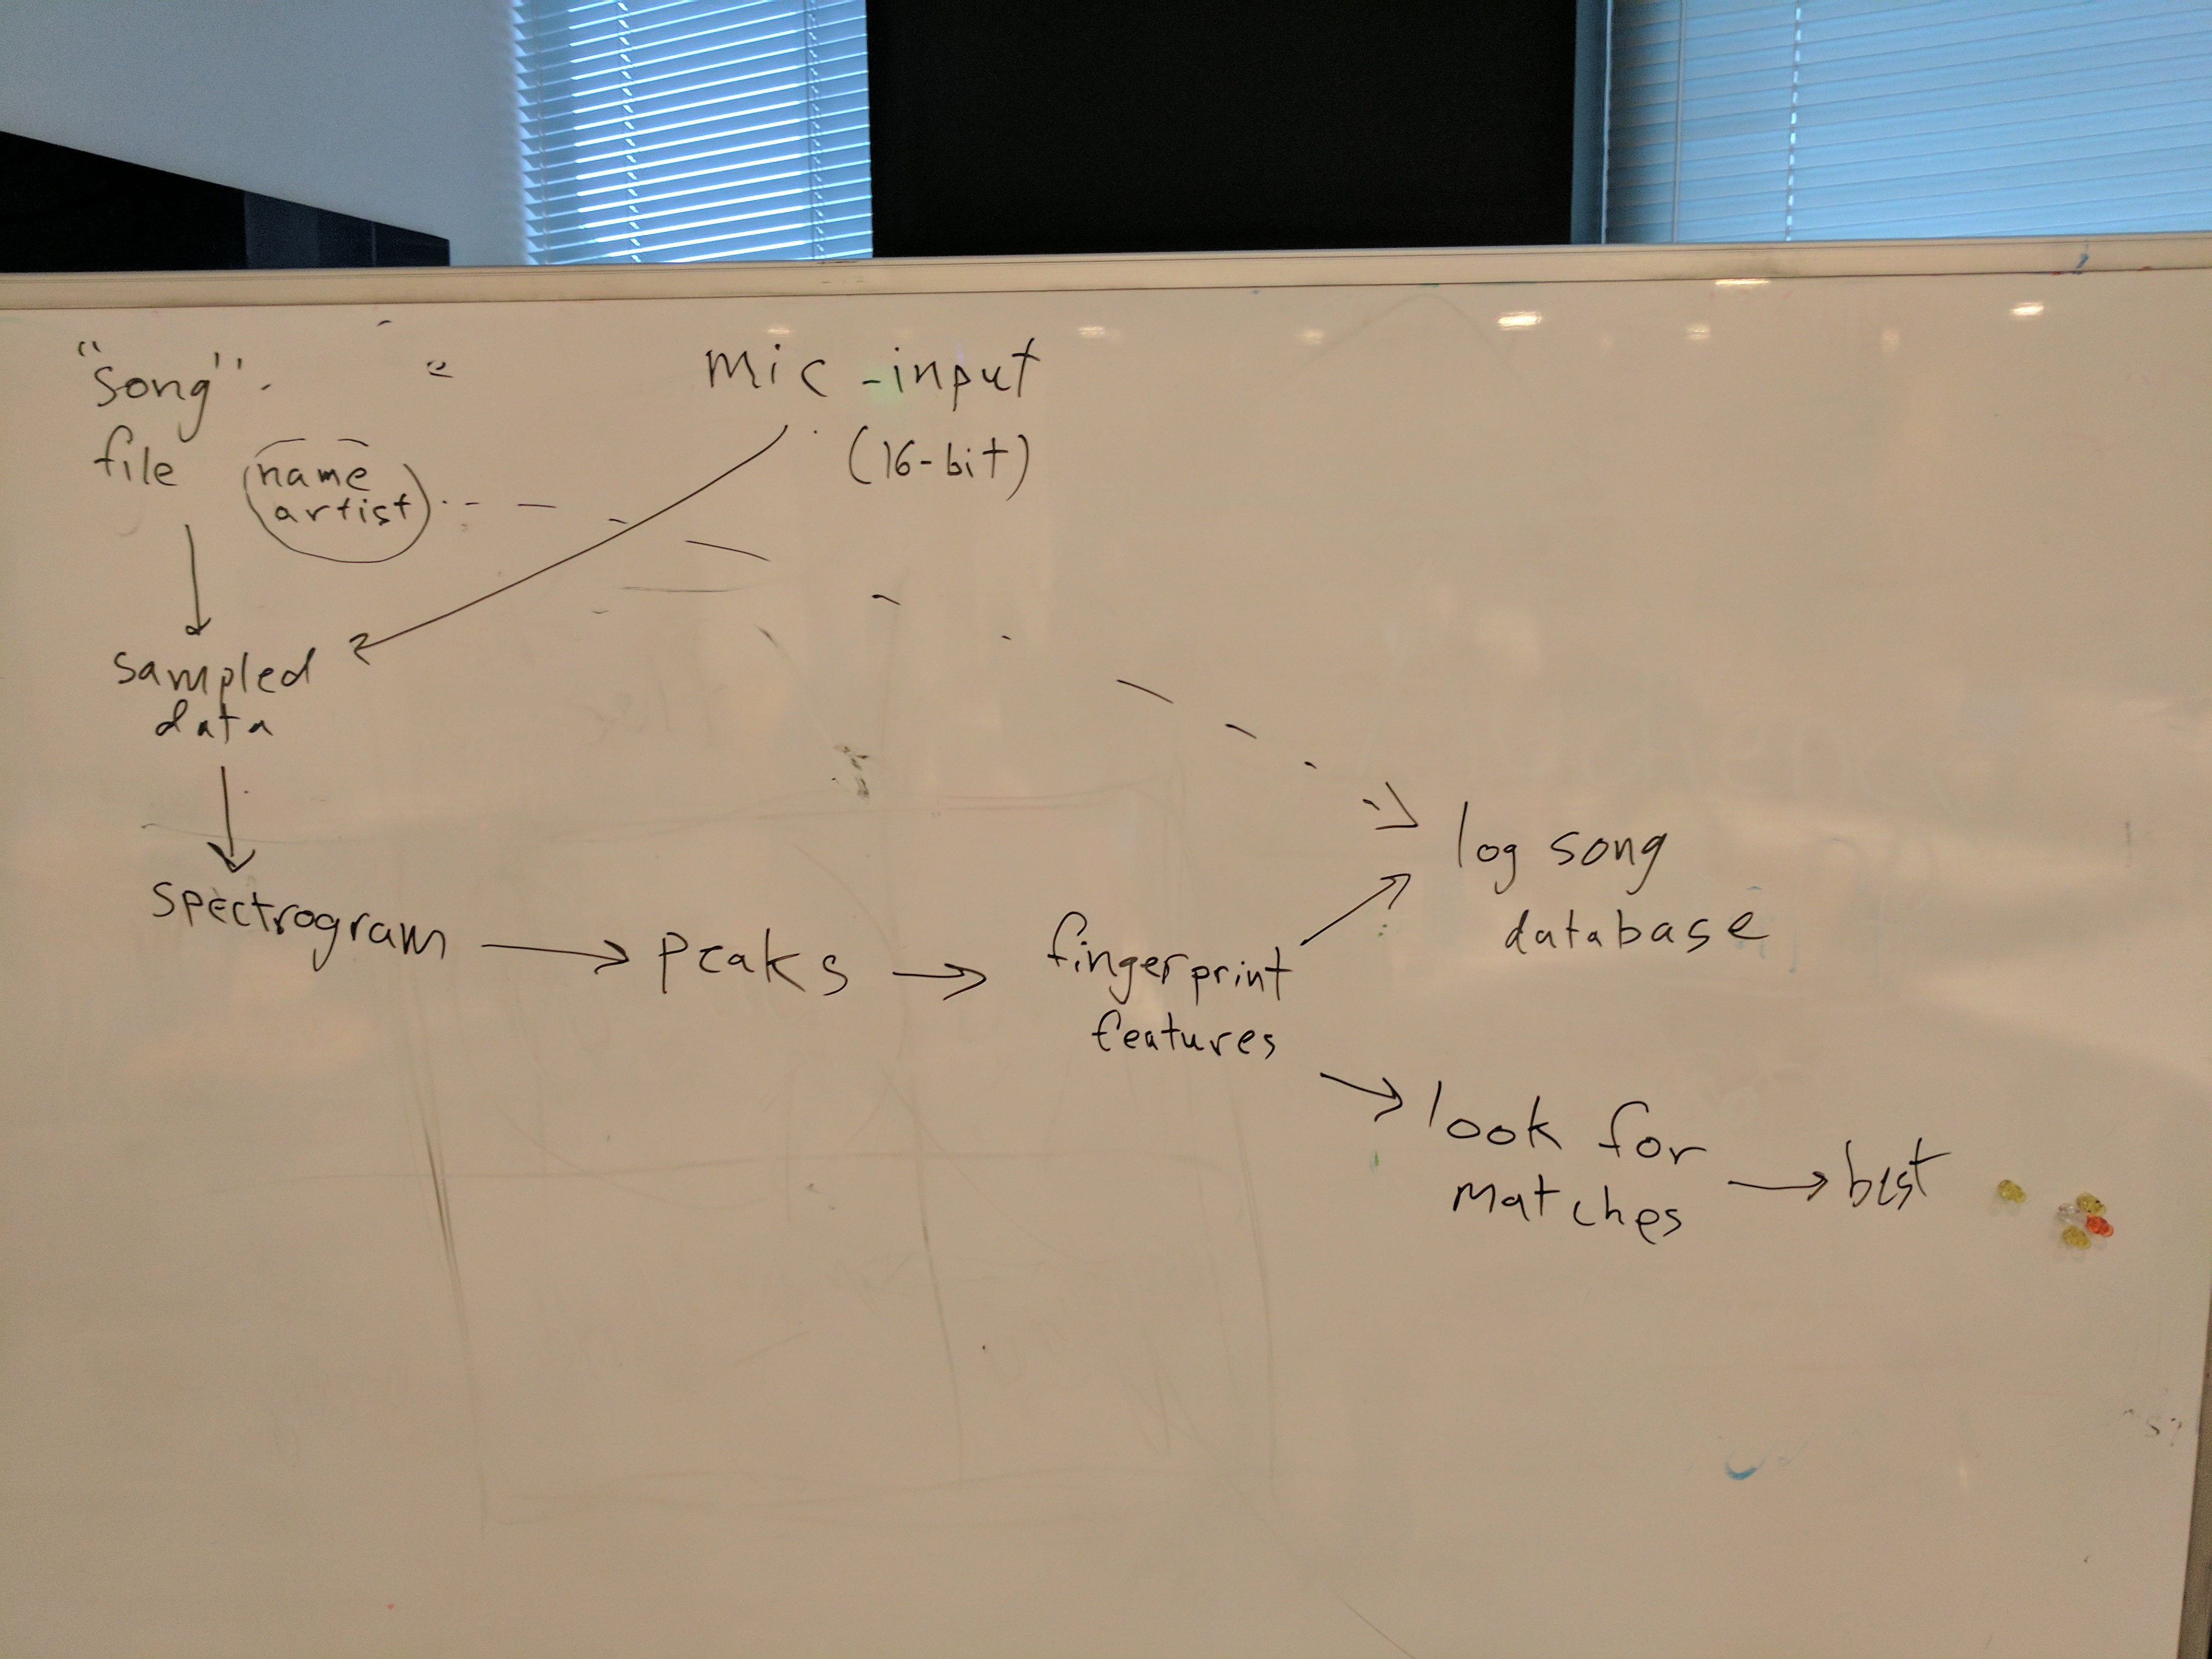 "song"
file
name
artist
mic-input
(16-bit)
sampled
data
spectrogram
peaks
fingerprint
features
log song
database
look for
matches
best